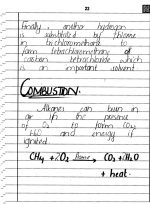 22
Finally, another hydrogen
is substituted by chlorine
in trichloromethane to
form tetrachloromethane or
carbon tetrachloride which
is an important solvent.
COMBUSTION.
Alkanes can burn in
air in the presence
of O2 to form CO2,
H2O and energy if
ignited.
CH4 + 2O2 flame → CO2 + 2H2O
+ heat.